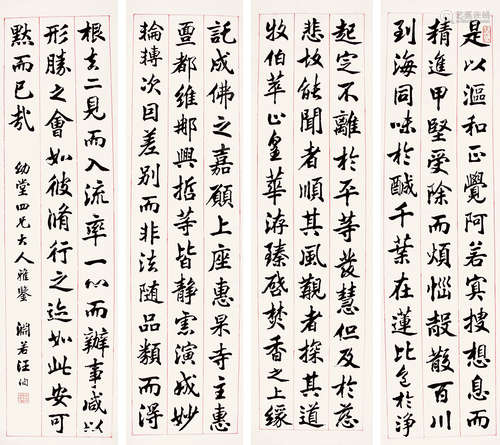 是以漚和正覺阿若冥搜想息而
精進甲堅受除而煩惱㲉散百川
到海同味於鹹千葉在蓮比色於淨
起定不離於平等發慧但及於慈
悲故能聞者順其風觀者探其道
牧伯萃止皇華洊臻啓焚香之上緣
託成佛之嘉願上座惠果寺主惠
亶都維那興哲等皆靜慮演成妙
輪轉次因差別而非法隨品類而得
根去二見而入流率一心而辦事咸以
形勝之會如彼脩行之迹如此安可
默而已哉
幼堂四兄大人雅鑒
淵若汪洵